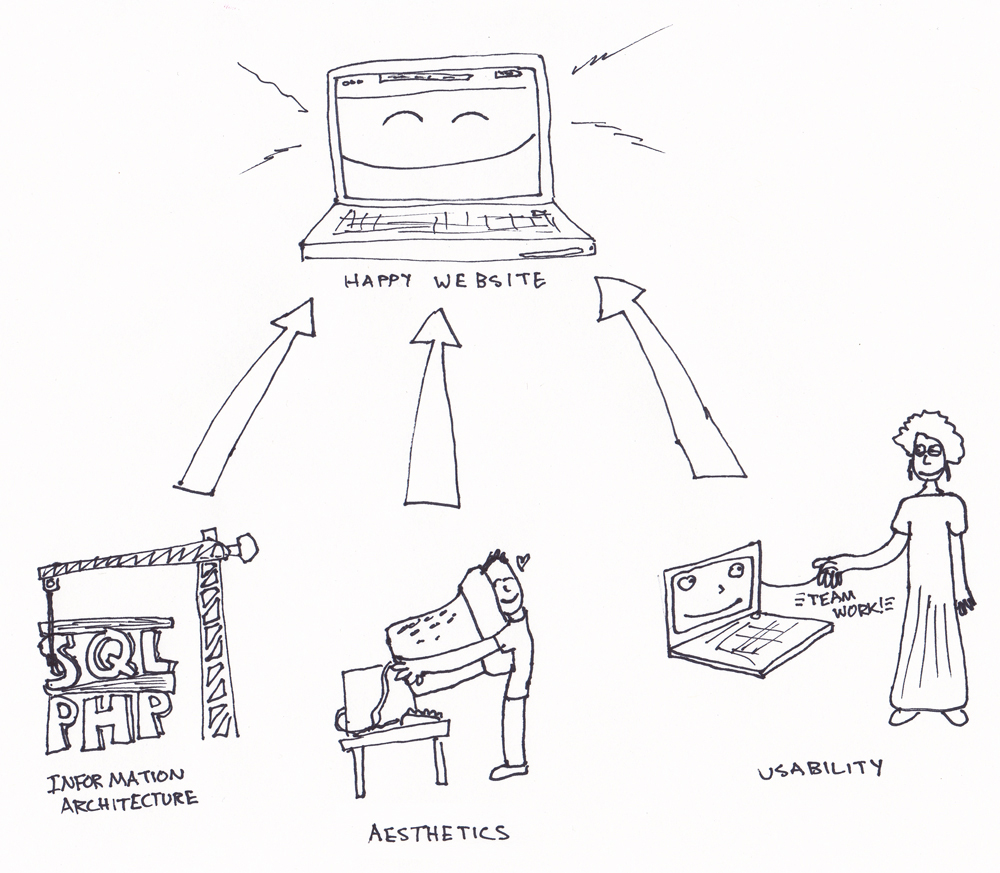 HAPPY WEBSITE
SQL
PHP
INFORMATION
ARCHITECTURE
AESTHETICS
TEAM
WORK!
USABILITY